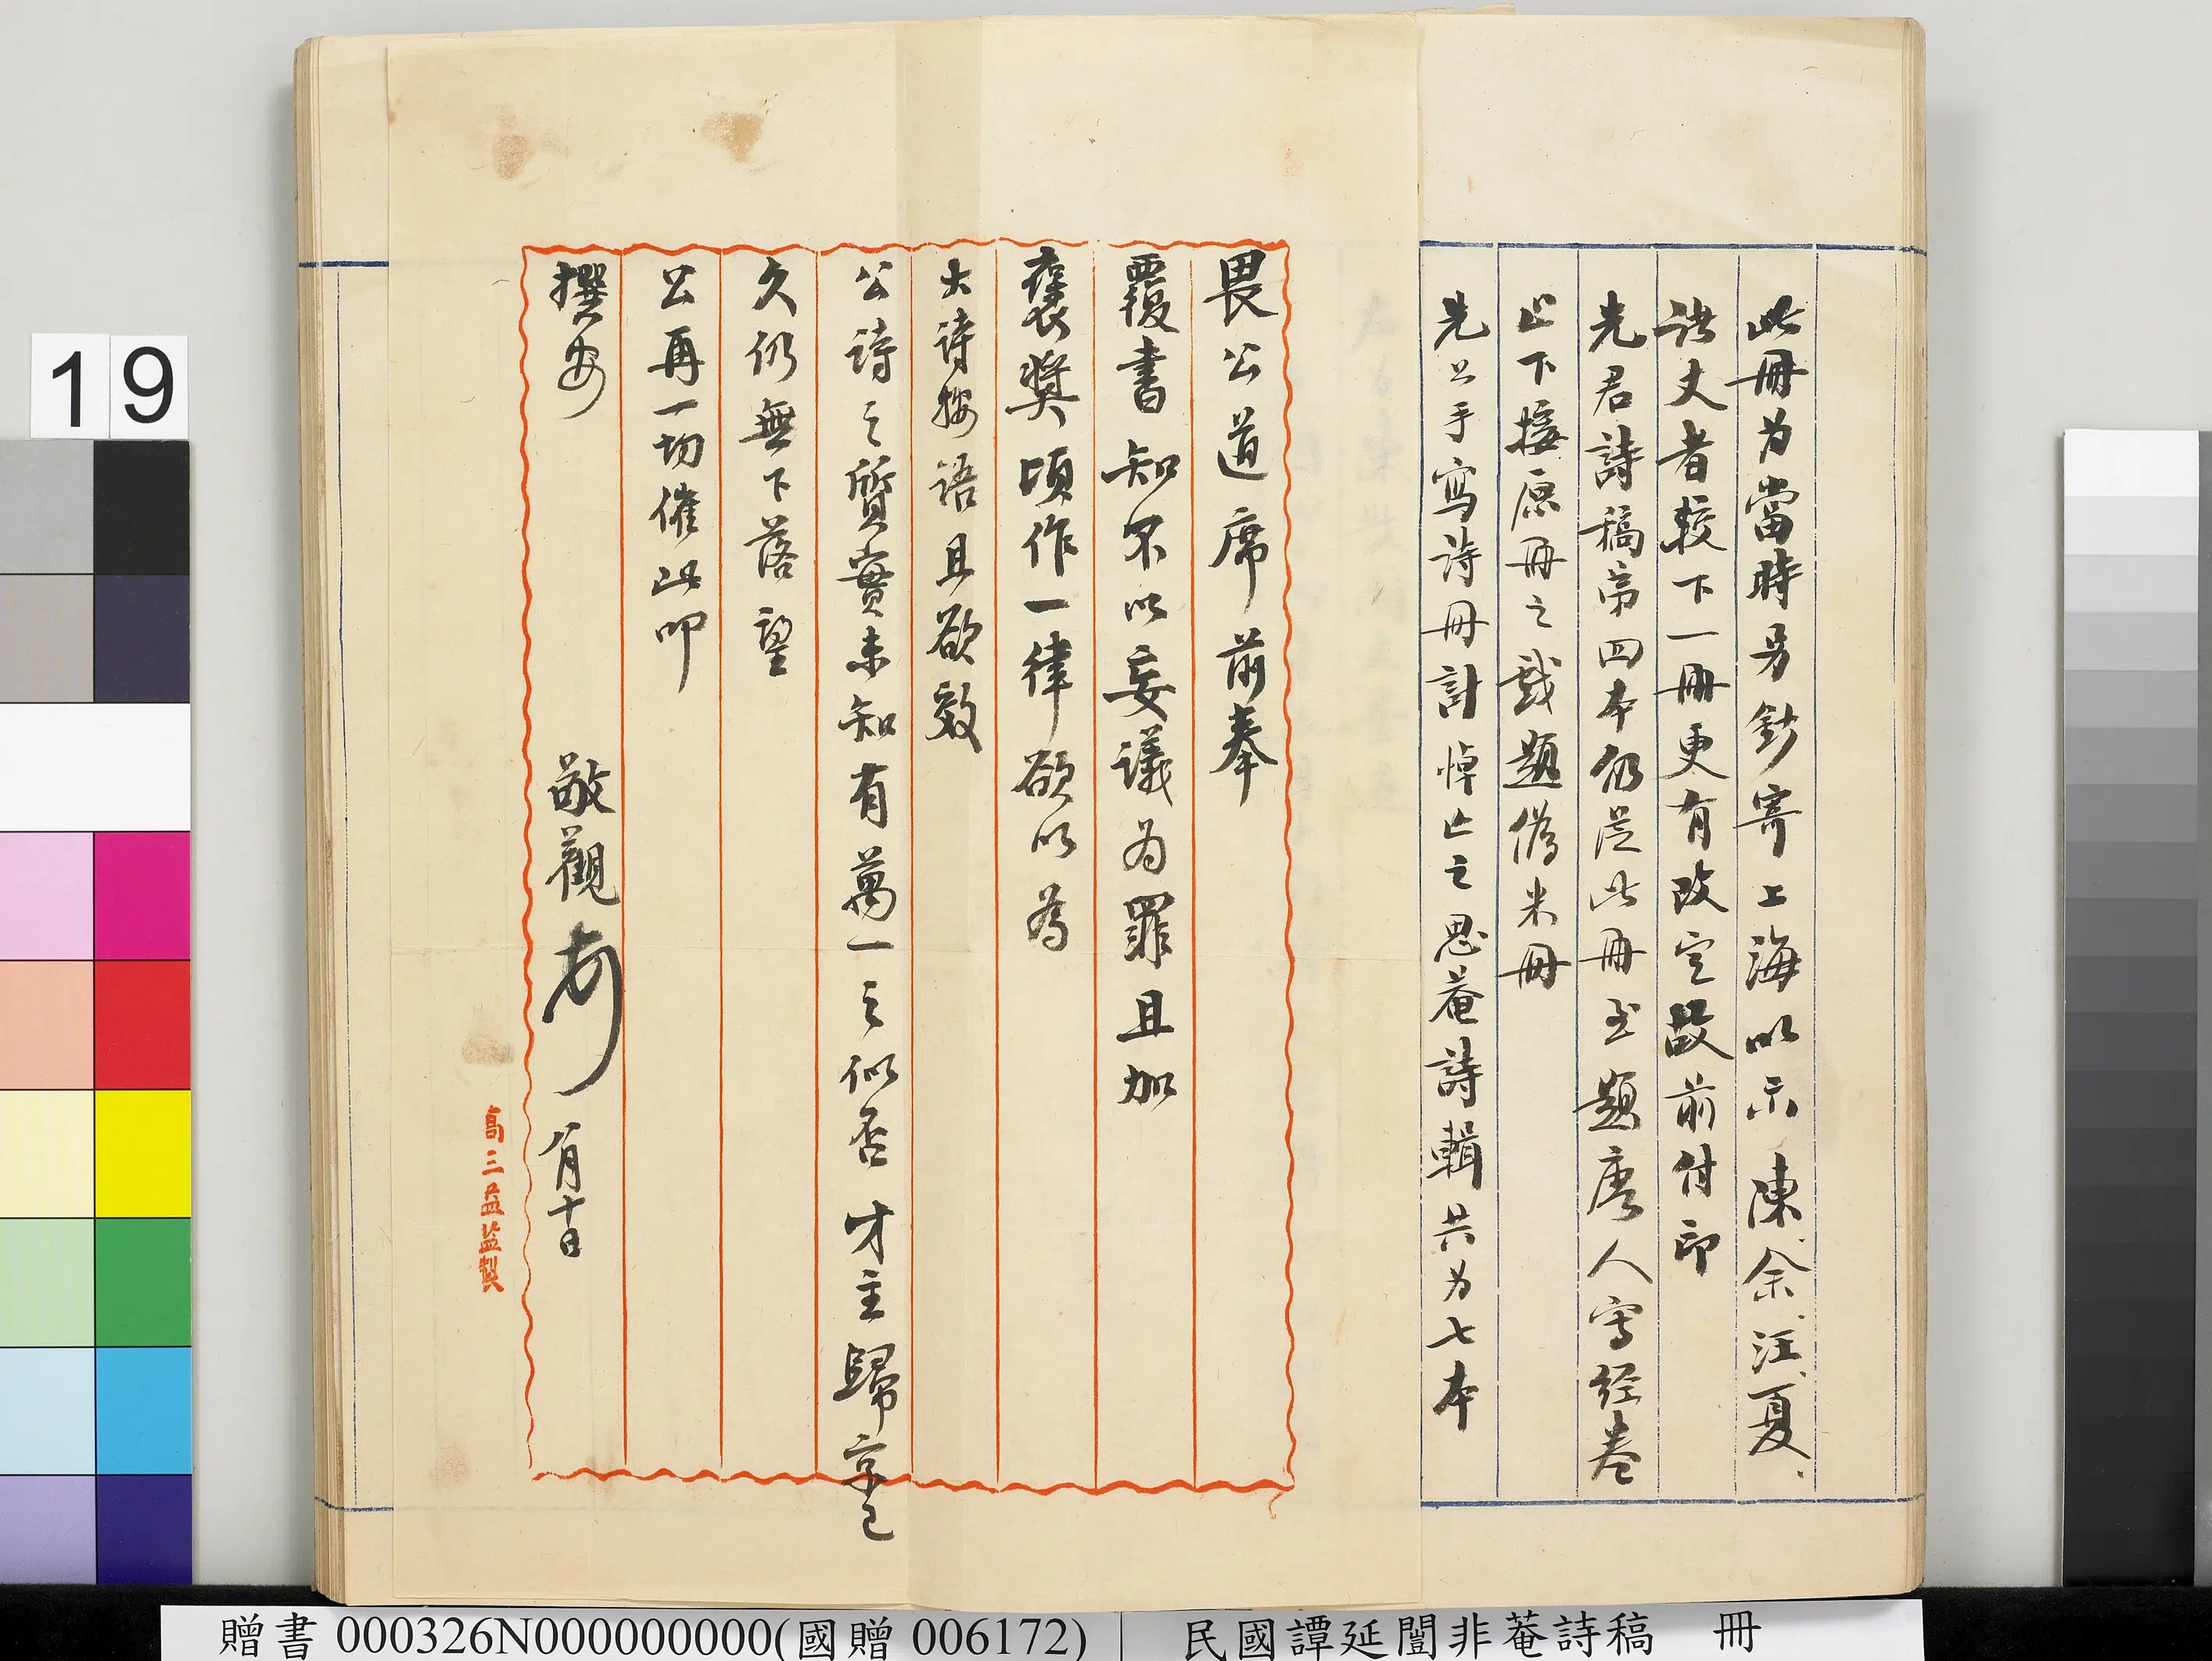 此冊为當時另鈔寄上海以示陳余汪夏
諸丈者較下一冊更有改定故前付印
先君詩稿第四本仍從此冊至題唐人寫经卷
止下接原冊之戲題僞米冊
先公手寫詩冊計悼亡之思菴詩輯共为七本
畏公道席前奉
覆書知不以妄議为罪且加
褒獎頃作一律欲以為
大詩按語且欲效
公詩之質實未知有萬一之似否才主歸京已
久仍無下落望
公再一切催此叩
撰安
敬觀 月十日
高三益監製
19
贈書 000326N000000000(國贈 006172) 民國譚延闓非菴詩稿 冊